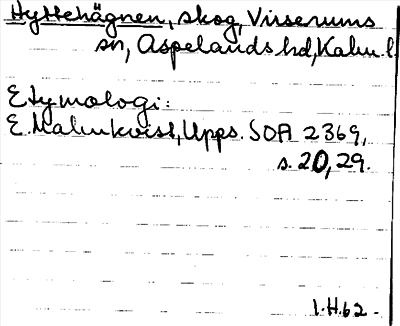 Hyttehägnen, skog, Virserums
sn, Aspelands hd, Kalm. l.
Etymologi:
E. Malmkvist, Upps. SOA 2369,
s. 20, 29.
1.H.62.